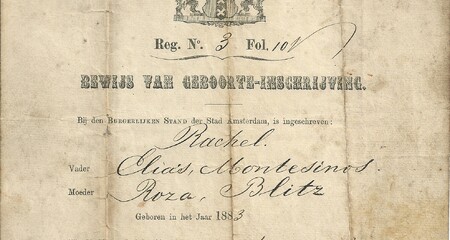 Reg. No. 3 Fol. 10
BEWIJS VAN GEBOORTE-INSCHRIJVING.
Bij den BURGERLIJKEN STAND der Stad Amsterdam, is ingeschreven:
Rachel.
Vader Elias, Montesinos.
Moeder Roza, Blitz
Geboren in het Jaar 1883